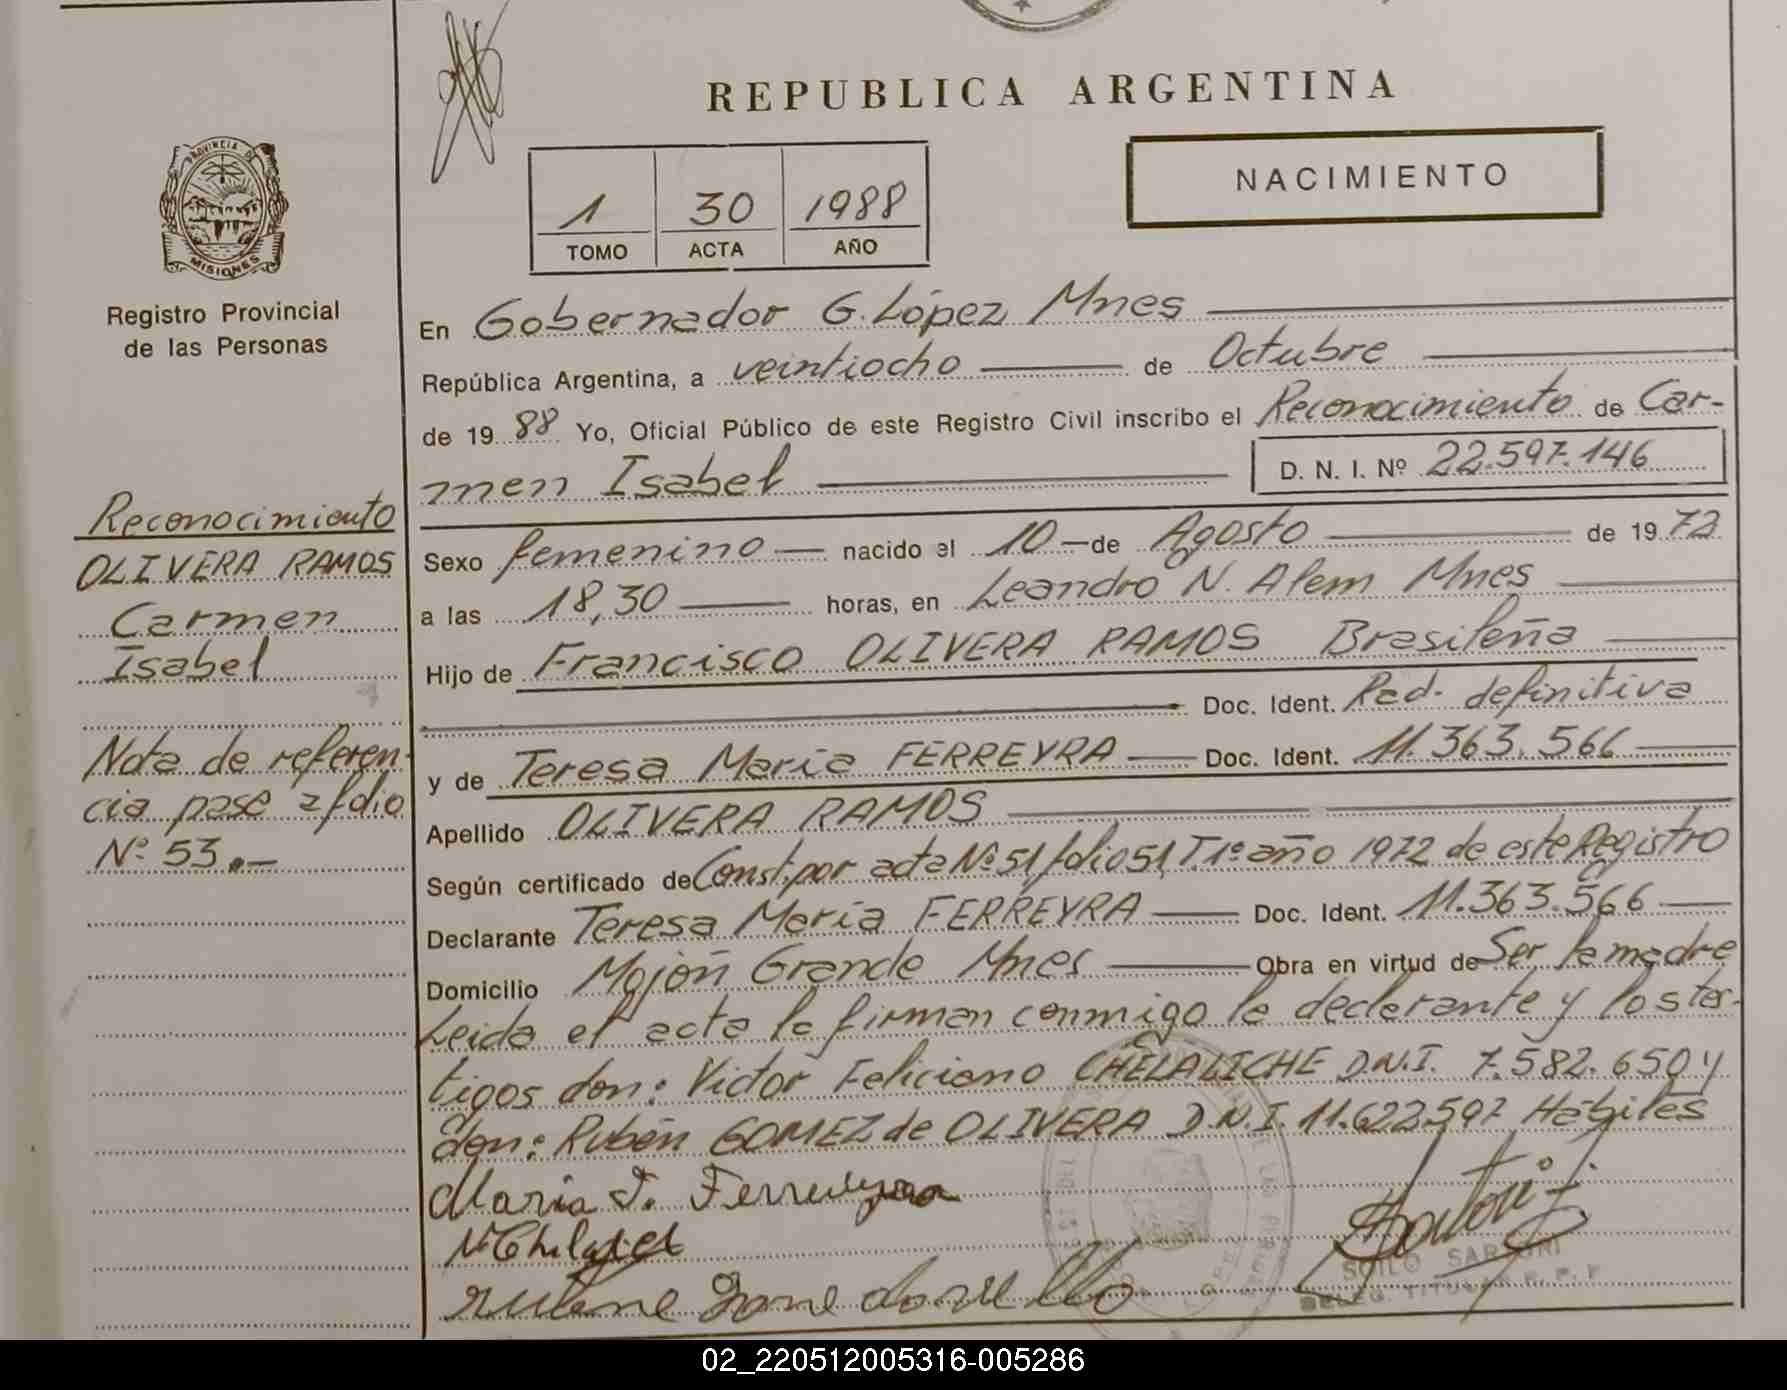 REPUBLICA ARGENTINA
PROVINCIA DE
MISIONES
Registro Provincial
de las Personas
1 30 1988
TOMO ACTA AÑO
NACIMIENTO
En Gobernador G. López Mnes
República Argentina, a veintiocho de Octubre
de 1988 Yo, Oficial Público de este Registro Civil inscribo el Reconocimiento de Car-
men Isabel D. N. I. Nº 22.597.146
Sexo femenino nacido el 10 de Agosto de 1972
a las 18,30 horas, en Leandro N. Alem Mnes
Hijo de Francisco OLIVERA RAMOS Brasileña
Doc. Ident. Rad. definitiva
y de Teresa María FERREYRA Doc. Ident. 11.363.566
Apellido OLIVERA RAMOS
Según certificado de Const. por acta Nº 51 folio 51, Tº 1º año 1972 de este Registro
Declarante Teresa María FERREYRA Doc. Ident. 11.363.566
Domicilio Mojón Grande Mnes Obra en virtud de Ser la madre
Leida el acta la firman conmigo la declarante y los tes-
tigos don: Victor Feliciano CHELALICHE D.N.I. 7.582.650 y
don: Rubén GOMEZ de OLIVERA D.N.I. 11.622.597 Hábiles
Maria T. Ferreyra
Reconocimiento
OLIVERA RAMOS
Carmen
Isabel
Nota de referen-
cia pase a folio
Nº 53.-
SARTORI
TITULAR R. P. P.
02_220512005316-005286